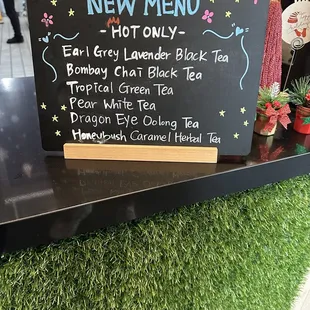 NEW MENU
- HOT ONLY -
Earl Grey Lavender Black Tea
Bombay Chai Black Tea
Tropical Green Tea
Pear White Tea
Dragon Eye Oolong Tea
Honeybush Caramel Herbal Tea